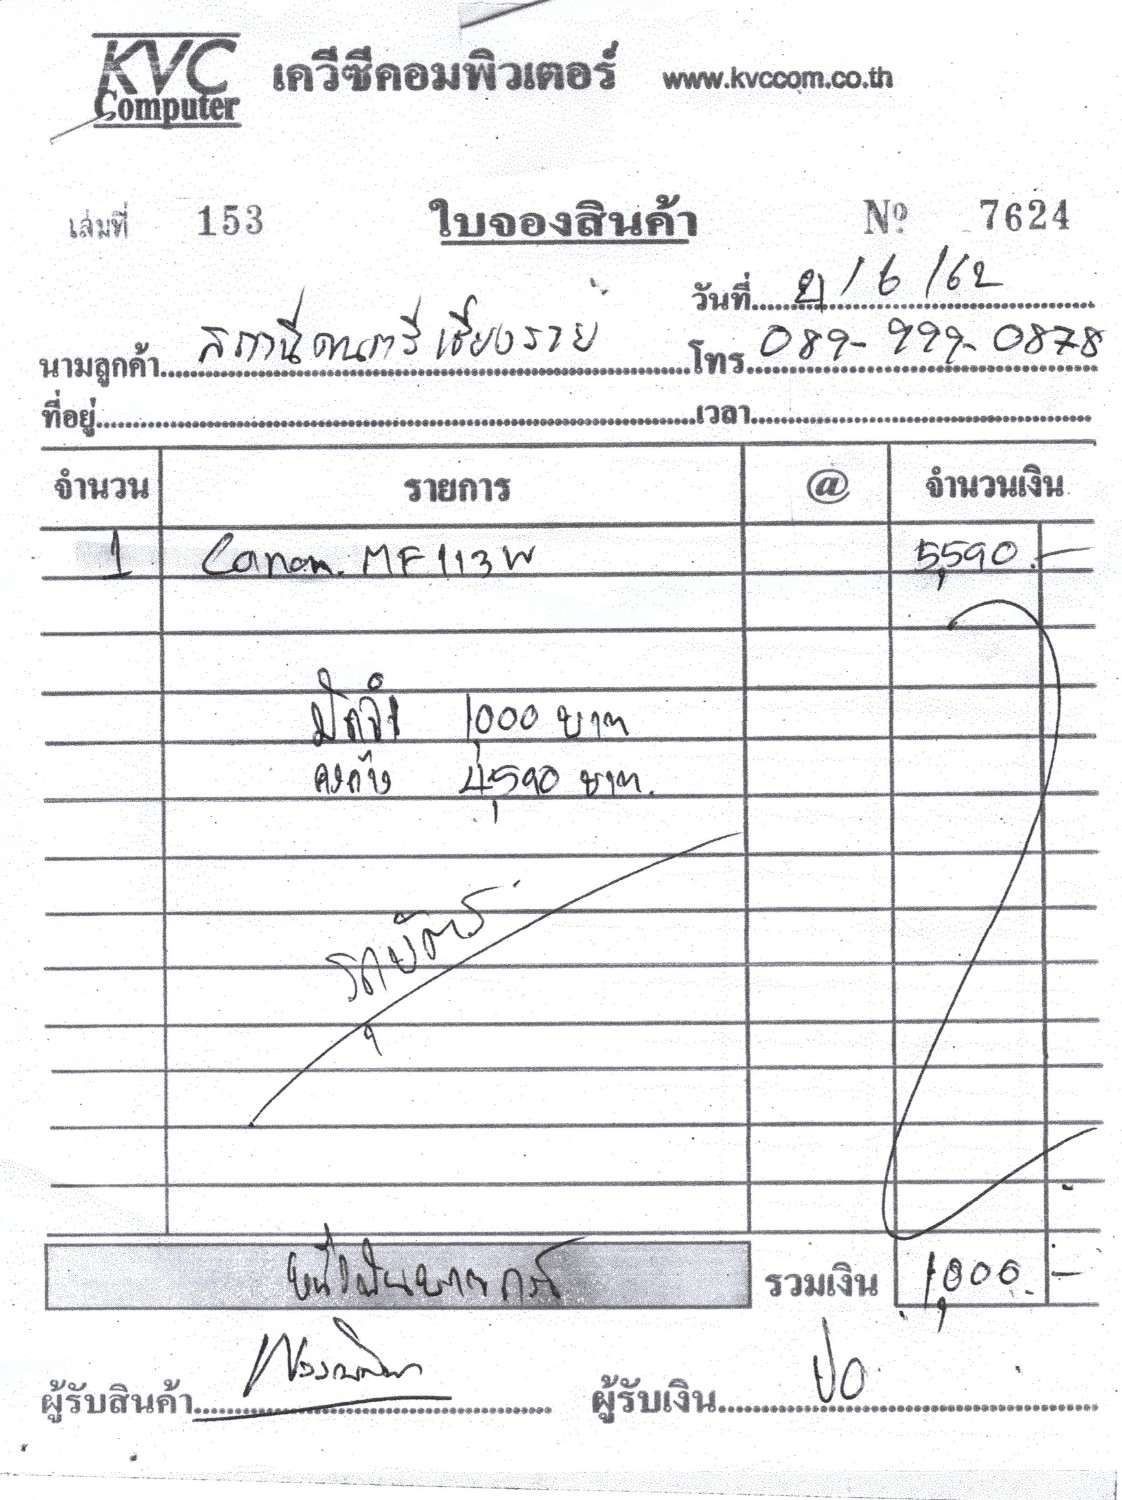 KVC Computer เควีซีคอมพิวเตอร์ www.kvccom.co.th
เล่มที่ 153 ใบจองสินค้า Nº 7624
วันที่ 21/6/62
นามลูกค้า สถานีดนตรีเชียงราย โทร. 089-999-0878
ที่อยู่ เวลา
จำนวน รายการ @ จำนวนเงิน
1 Canon. MF113W 5,590.-
มัดจำ 1,000 บาท
คงค้าง 4,590 บาท.
รูดบัตร
หนึ่งพันบาท รวมเงิน 1,000.-
ผู้รับสินค้า ผู้รับเงิน ปอ